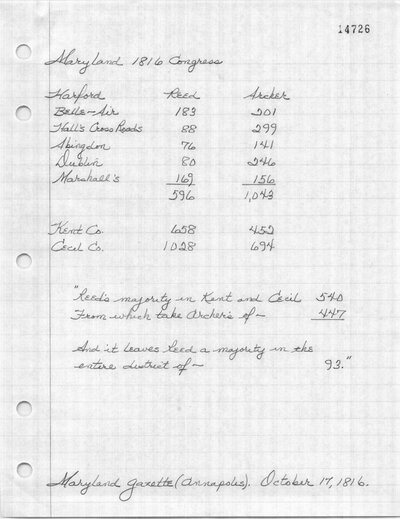 14726
Maryland 1816 Congress
Harford Reed Archer
Belle-Air 183 201
Hall's Cross Roads 88 299
Abingdon 76 141
Dublin 80 246
Marshall's 169 156
596 1,043
Kent Co. 658 452
Cecil Co. 1028 694
"Reed's majority in Kent and Cecil 540
From which take Archer's of — 447
And it leaves Reed a majority in the
entire district of — 93."
Maryland Gazette (Annapolis). October 17, 1816.